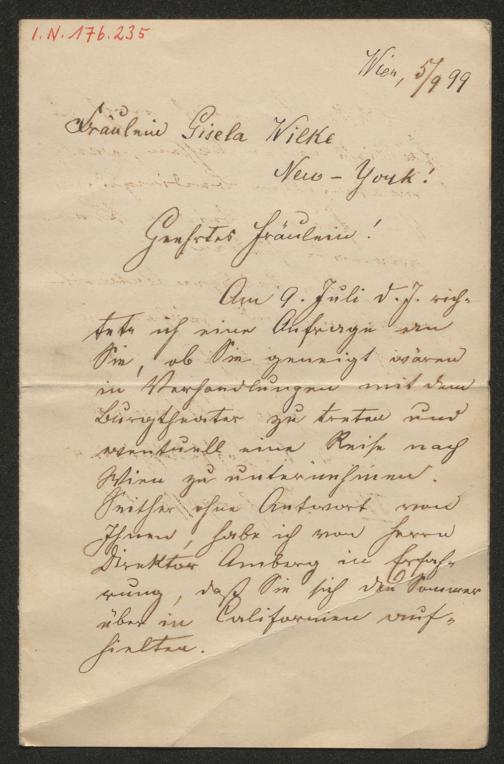 I.N. 176.235
Wien, 5/9 99
Fräulein Gisela Wilke
New-York!
Geehrtes Fräulein!
Am 9. Juli d. J. rich-
tete ich eine Anfrage an
Sie, ob Sie geneigt wären
in Verhandlungen mit dem
Burgtheater zu treten und
eventuell eine Reise nach
Wien zu unternehmen.
Seither ohne Antwort von
Ihnen, habe ich von Herrn
Direktor Amberg in Erfah-
rung, daß Sie sich den Sommer
über in Californien auf-
hielten.